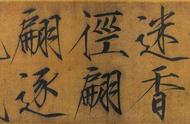 迷香
徑翩
翩逐